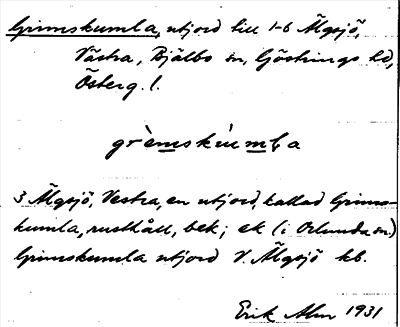 Grimskumla, utjord till 1-6 Älgsjö,
Västra, Bjälbo sn, Göstrings hd,
Österg. l.
grèmskùmla
3 Älgsjö, Vestra, en utjord, kallad Grims-
kumla, rusthåll, bek; ek (i Orlunda sn.)
Grimskumla utjord V. Älgsjö kb.
Erik Alm 1931